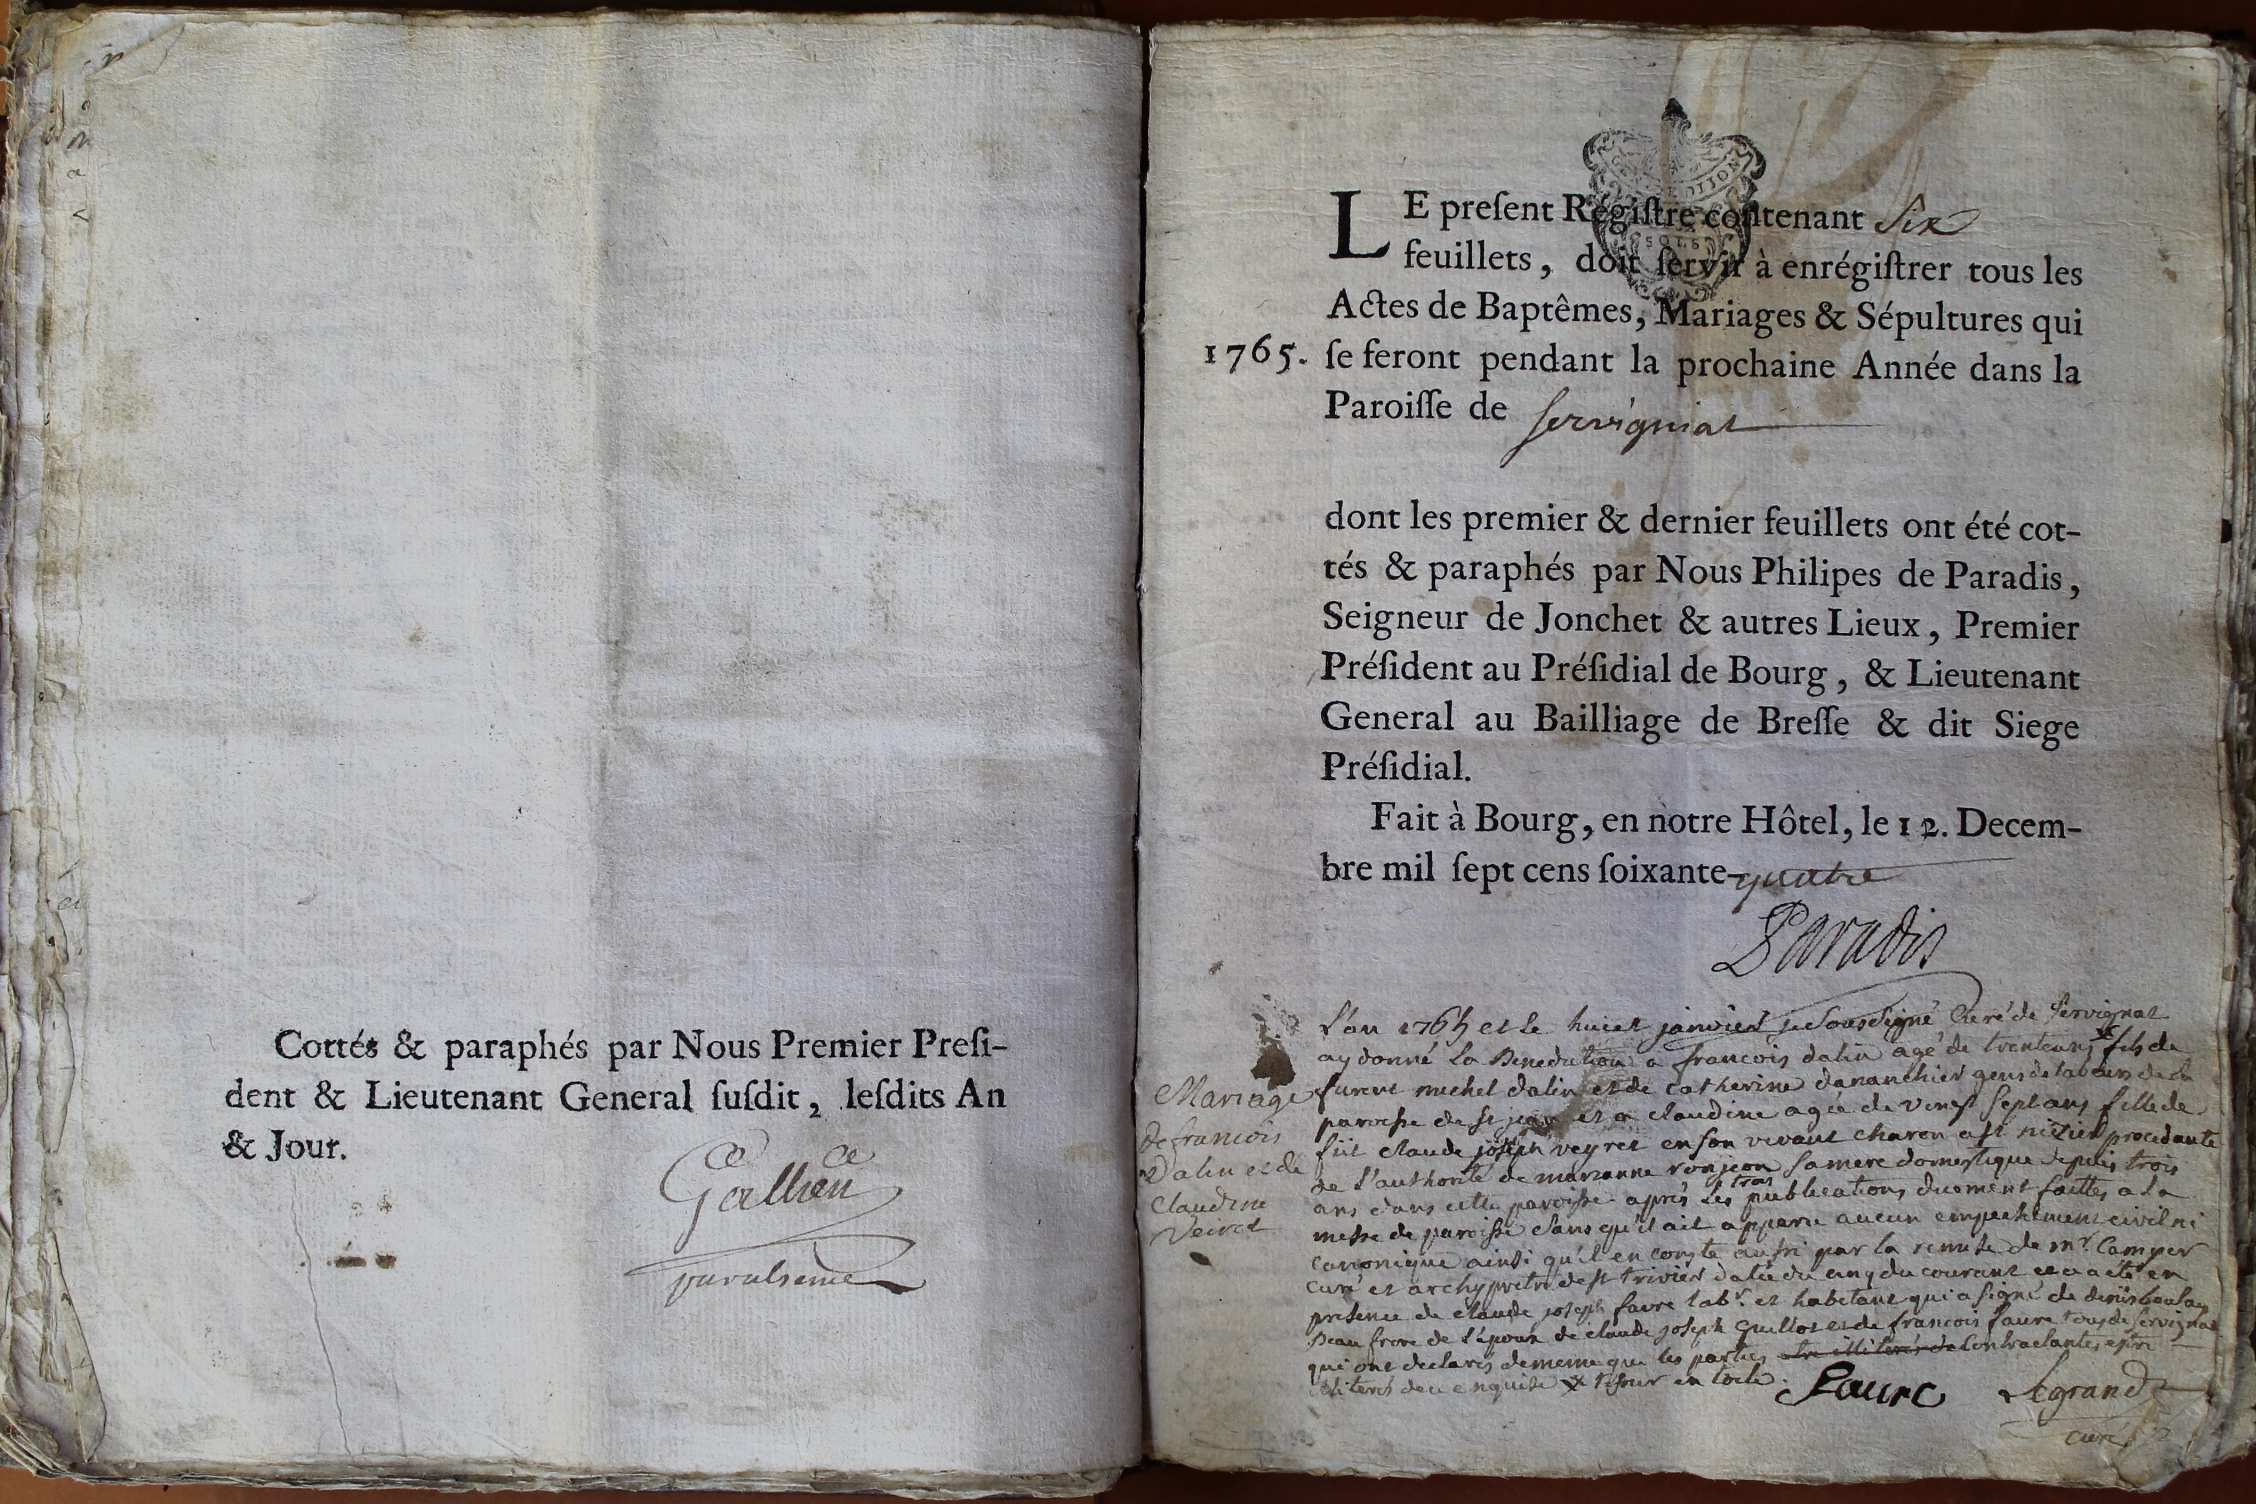 Cottés & paraphés par Nous Premier Presi-
dent & Lieutenant General susdit, lesdits An
& Jour.
LE present Régistre contenant six
feuillets, doit servir à enrégistrer tous les
Actes de Baptêmes, Mariages & Sépultures qui
1765. se feront pendant la prochaine Année dans la
Paroisse de servigniat
dont les premier & dernier feuillets ont été cot-
tés & paraphés par Nous Philipes de Paradis,
Seigneur de Jonchet & autres Lieux, Premier
Président au Présidial de Bourg, & Lieutenant
General au Bailliage de Bresse & dit Siege
Présidial.
Fait à Bourg, en notre Hôtel, le 12. Decem-
bre mil sept cens soixante-quatre
Paradis
Mariage
de francois
Dalin et de
Claudine
Veiret
L'an 1765 et le huict janvier je soussigné Curé de Servignat
ay donné la Benediction a francois dalin agé de trente ans fils de
furent michel dalin et de catherine dananchier gens de labeur de la
paroisse de st jean et a claudine agée de vingt sept ans fille de
fut claude joseph veyret en son vivant charon procedante
de l'authorité de marianne ronjeon sa mere domestique depuis trois
ans dans cette paroisse apres les trois publications duement faittes a la
messe de paroisse sans qu'il ait apparu aucun empechement civil ni
canonique ainsi qu'il en conste aussi par la remise de mr. Camper
curé et archypretre de st trivier datée du cinq du courant et a été en
presence de claude joseph favre labr. et habitant qui a signé de denis
Beau frere de l'époux de claude joseph Guillot et de francois faure tous de Servignat
qui ont declarés de meme que les parties contractantes estre
illiterés de ce enquise
Faure Legrand
curé